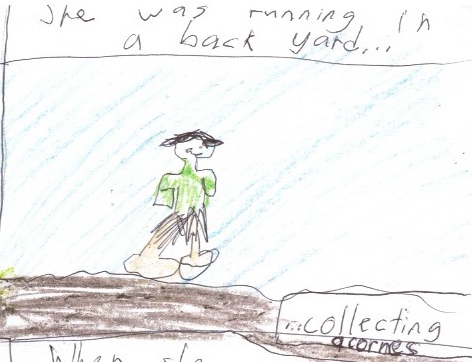 She was running in
a back yard...
...collecting
acornes
When she